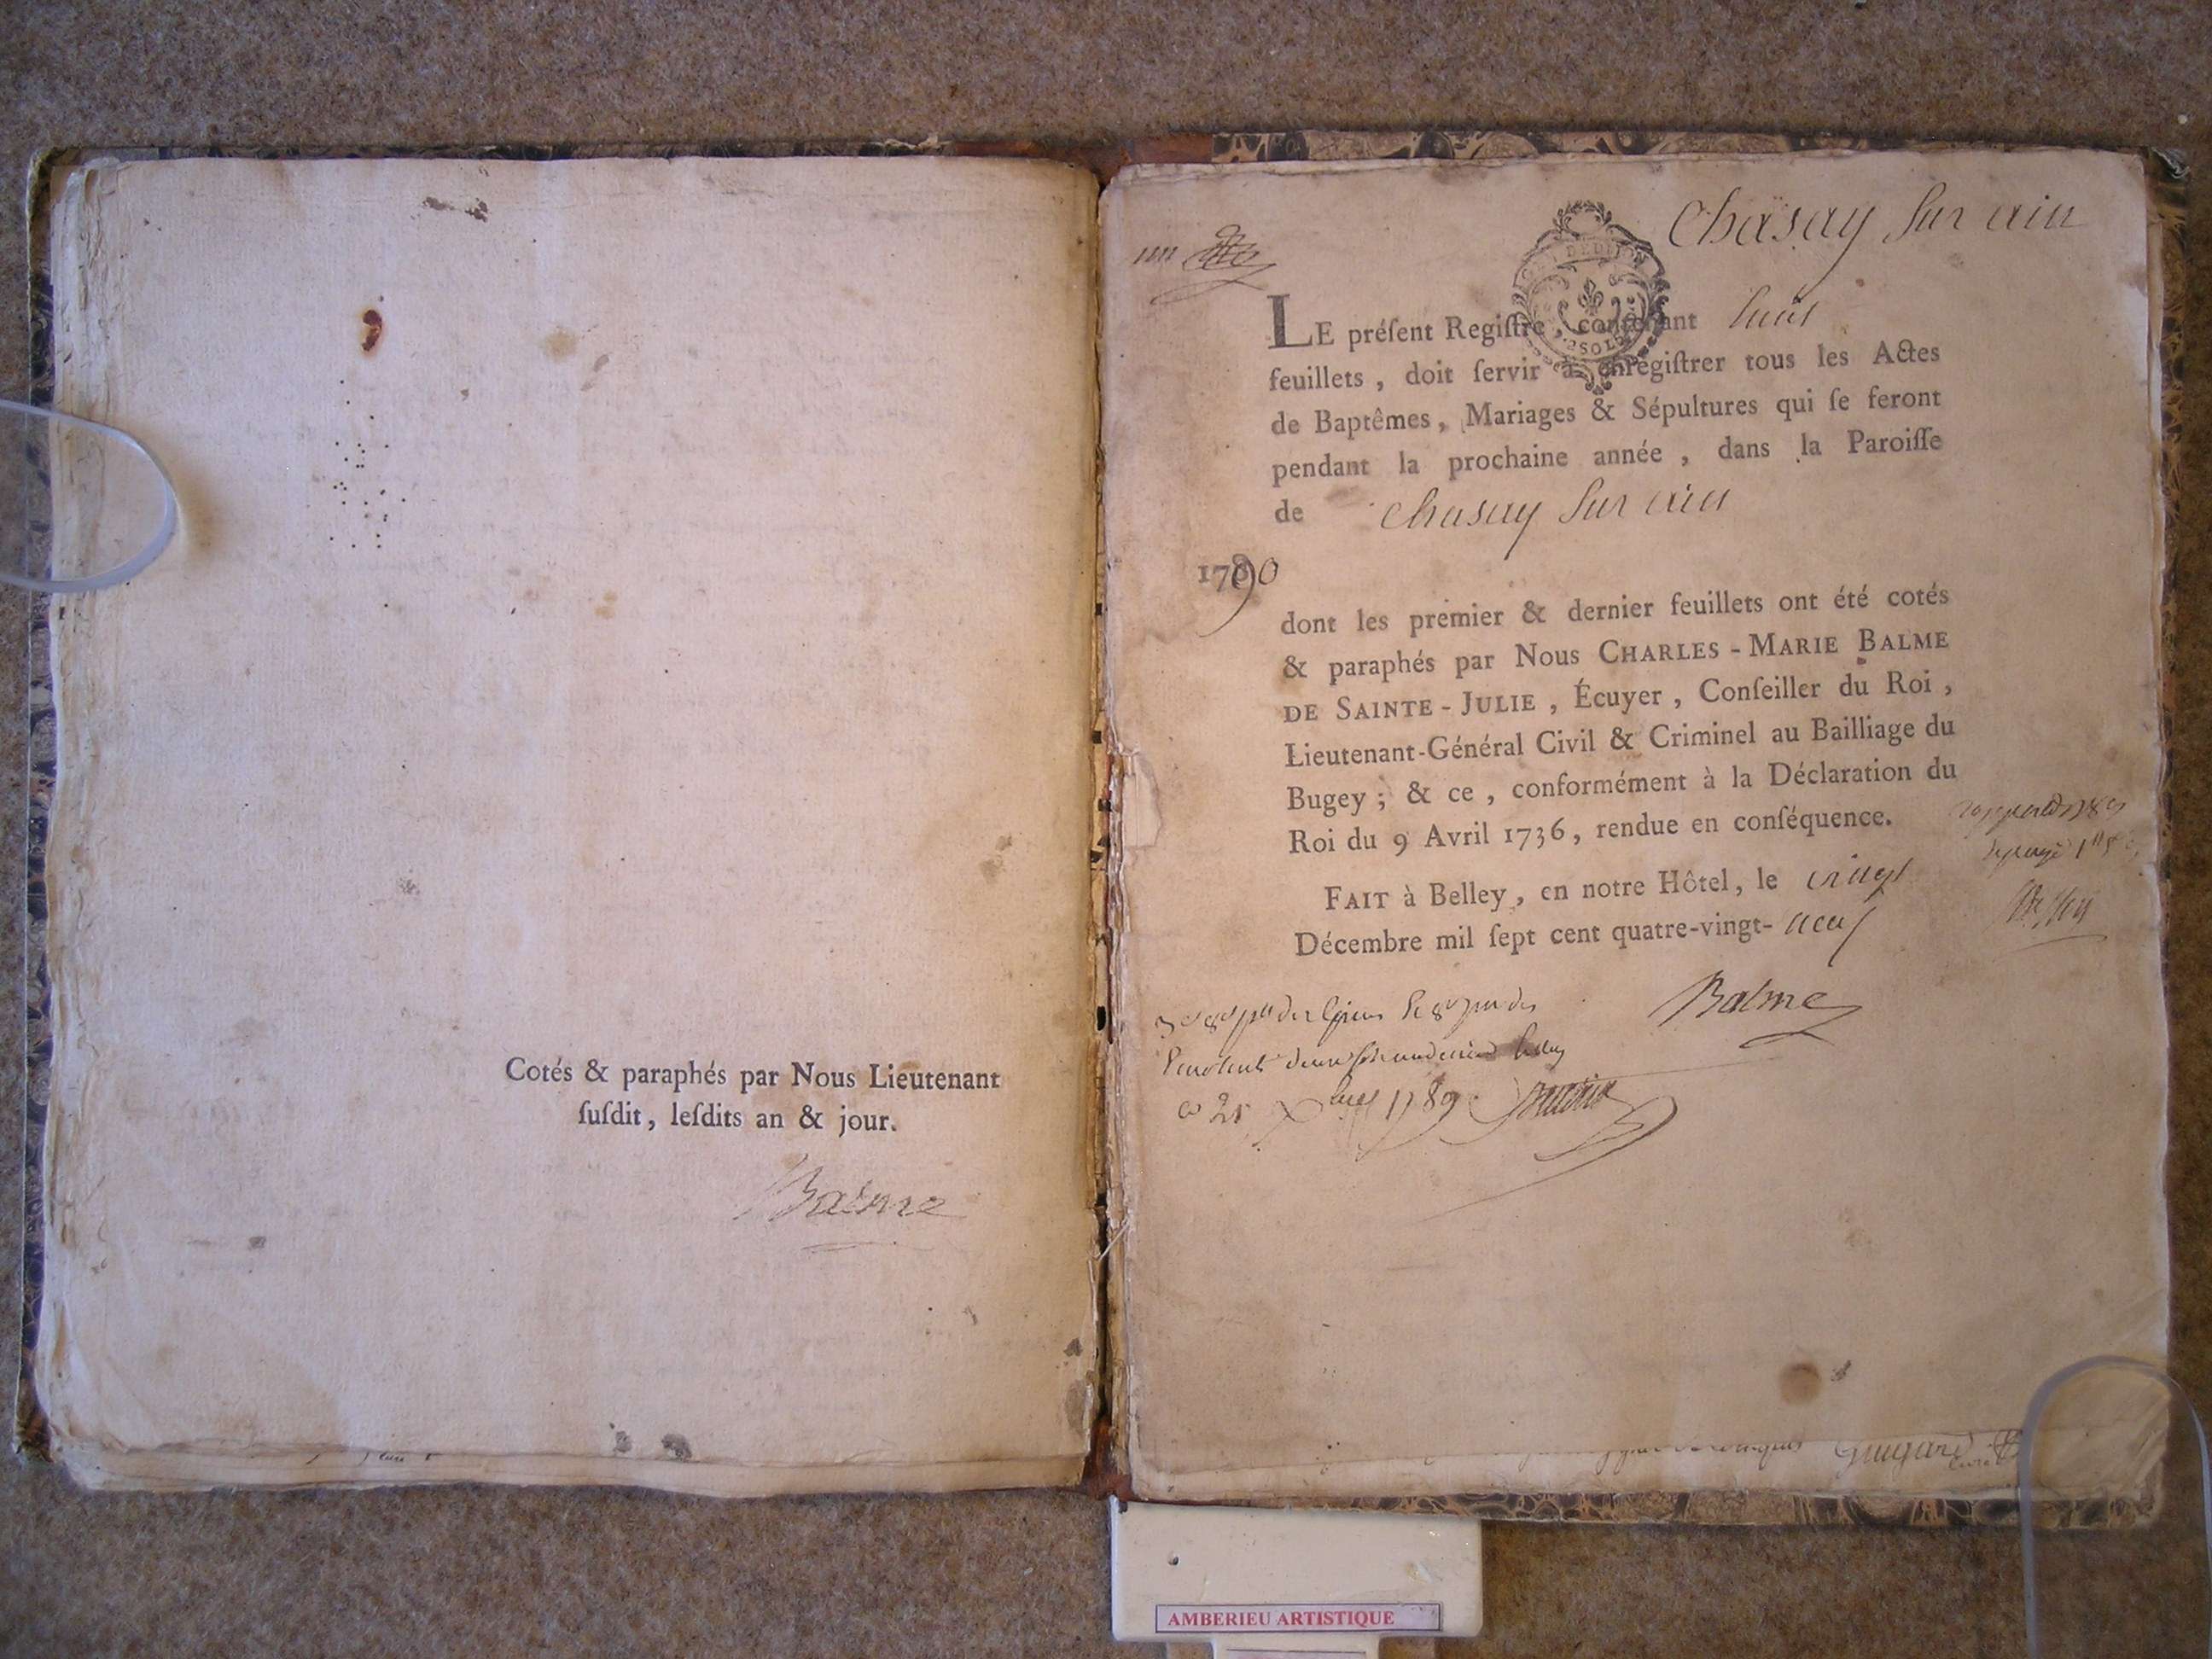 Cotés & paraphés par Nous Lieutenant
ſuſdit, leſdits an & jour.
Balme
Chasay Sur ain
LE préſent Regiſtre, contenant huit
feuillets, doit ſervir à enregiſtrer tous les Actes
de Baptêmes, Mariages & Sépultures qui ſe feront
pendant la prochaine année, dans la Paroiſſe
de Chasay Sur ain
1790
dont les premier & dernier feuillets ont été cotés
& paraphés par Nous CHARLES-MARIE BALME
DE SAINTE-JULIE, Écuyer, Conſeiller du Roi,
Lieutenant-Général Civil & Criminel au Bailliage du
Bugey; & ce, conformément à la Déclaration du
Roi du 9 Avril 1736, rendue en conſéquence.
FAIT à Belley, en notre Hôtel, le vingt
Décembre mil ſept cent quatre-vingt-neuf
Balme
1789
Guigard
AMBERIEU ARTISTIQUE